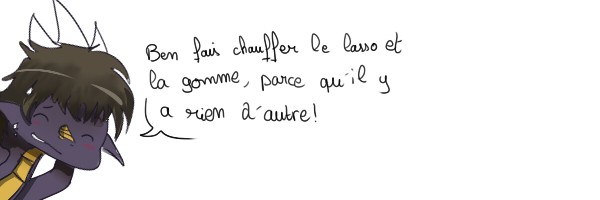 Ben fais chauffer le lasso et
la gomme, parce qu'il y
a rien d'autre!